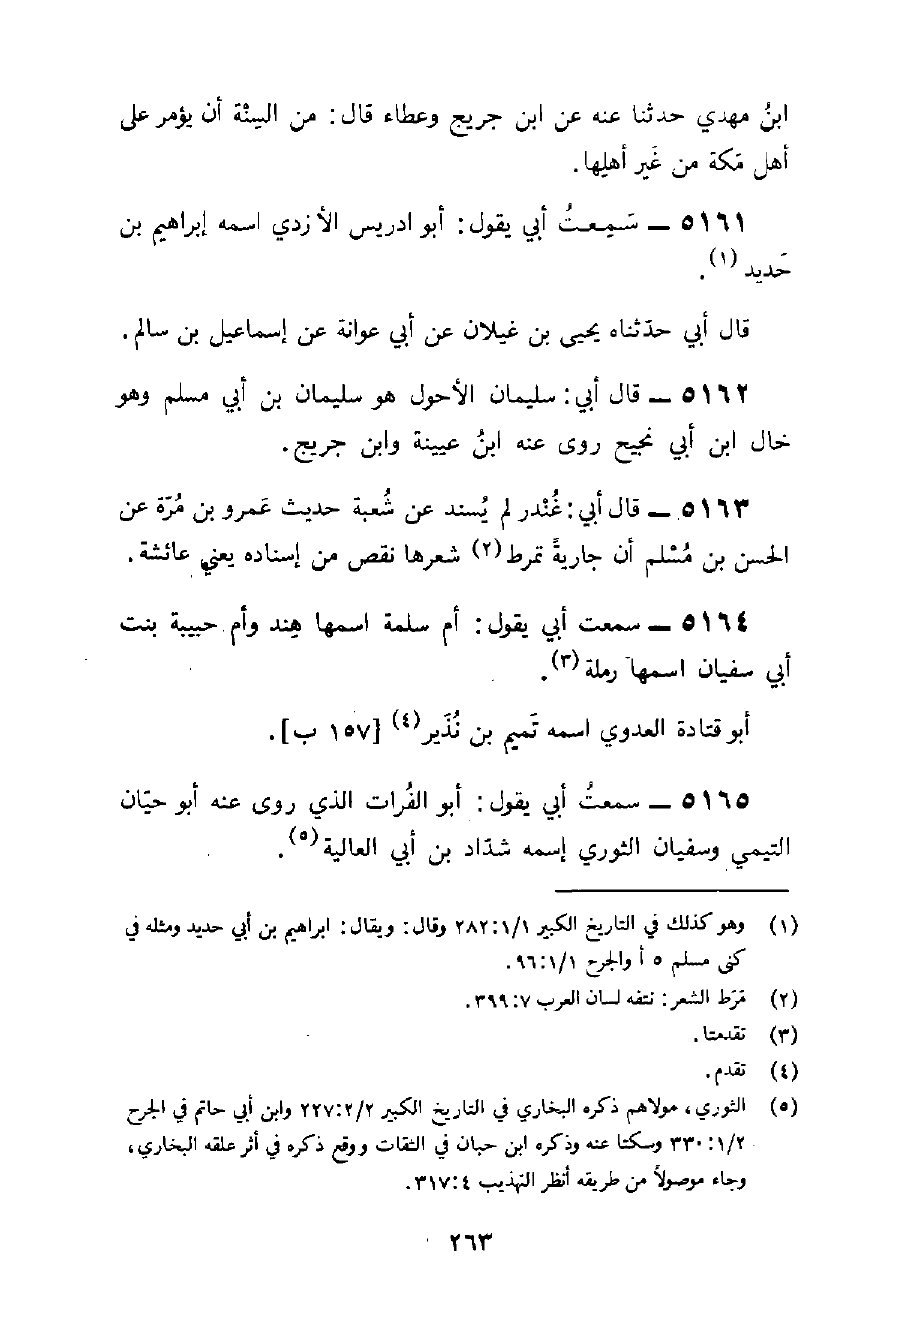 ابنُ مهدي حدثنا عنه عن ابن جريج وعطاء قال : من السِنَّة أن يؤمر على
أهل مَكة من غَير أهلِها .
٥١٦١ ــ سَمِعتُ أبي يقول : أبو ادريس الأزدي اسمه إبراهيم بن
حَديد (١) .
قال أبي حدّثناه يحيى بن غيلان عن أبي عوانة عن إسماعيل بن سالم .
٥١٦٢ ــ قال أبي : سليمان الأحول هو سليمان بن أبي مسلم وهو
خال ابن أبي نجيح روى عنه ابنُ عيينة وابن جريج .
٥١٦٣ ــ قال أبي : غُنْدر لم يُسند عن شُعبة حديث عَمرو بن مُرّة عن
الحسن بن مُسْلم أن جاريةً تمرط (٢) شعرها نقص من إسناده يعني عائشة .
٥١٦٤ ــ سمعت أبي يقول : أم سلمة اسمها هِند وأم حبيبة بنت
أبي سفيان اسمها رملة (٣) .
أبو قتادة العدوي اسمه تَميم بن نُذَير (٤) [١٥٧ ب] .
٥١٦٥ ــ سمعتُ أبي يقول : أبو الفُرات الذي روى عنه أبو حيّان
التيمي وسفيان الثوري إسمه شدّاد بن أبي العالية (٥) .
(١) وهو كذلك في التاريخ الكبير ١/١:٢٨٢ وقال : ويقال : ابراهيم بن أبي حديد ومثله في
كنى مسلم ٥ أ والجرح ١/١:٩٦ .
(٢) مَرَط الشعر : نتفه لسان العرب ٧:٣٩٩ .
(٣) تقدمتا .
(٤) تقدم .
(٥) الثوري ، مولاهم ذكره البخاري في التاريخ الكبير ٢/٢:٢٢٧ وابن أبي حاتم في الجرح
١/٢:٣٣٠ وسكتا عنه وذكره ابن حبان في الثقات ووقع ذكره في أثر علقه البخاري ،
وجاء موصولاً من طريقه أنظر التهذيب ٤:٣١٧ .
٢٦٣